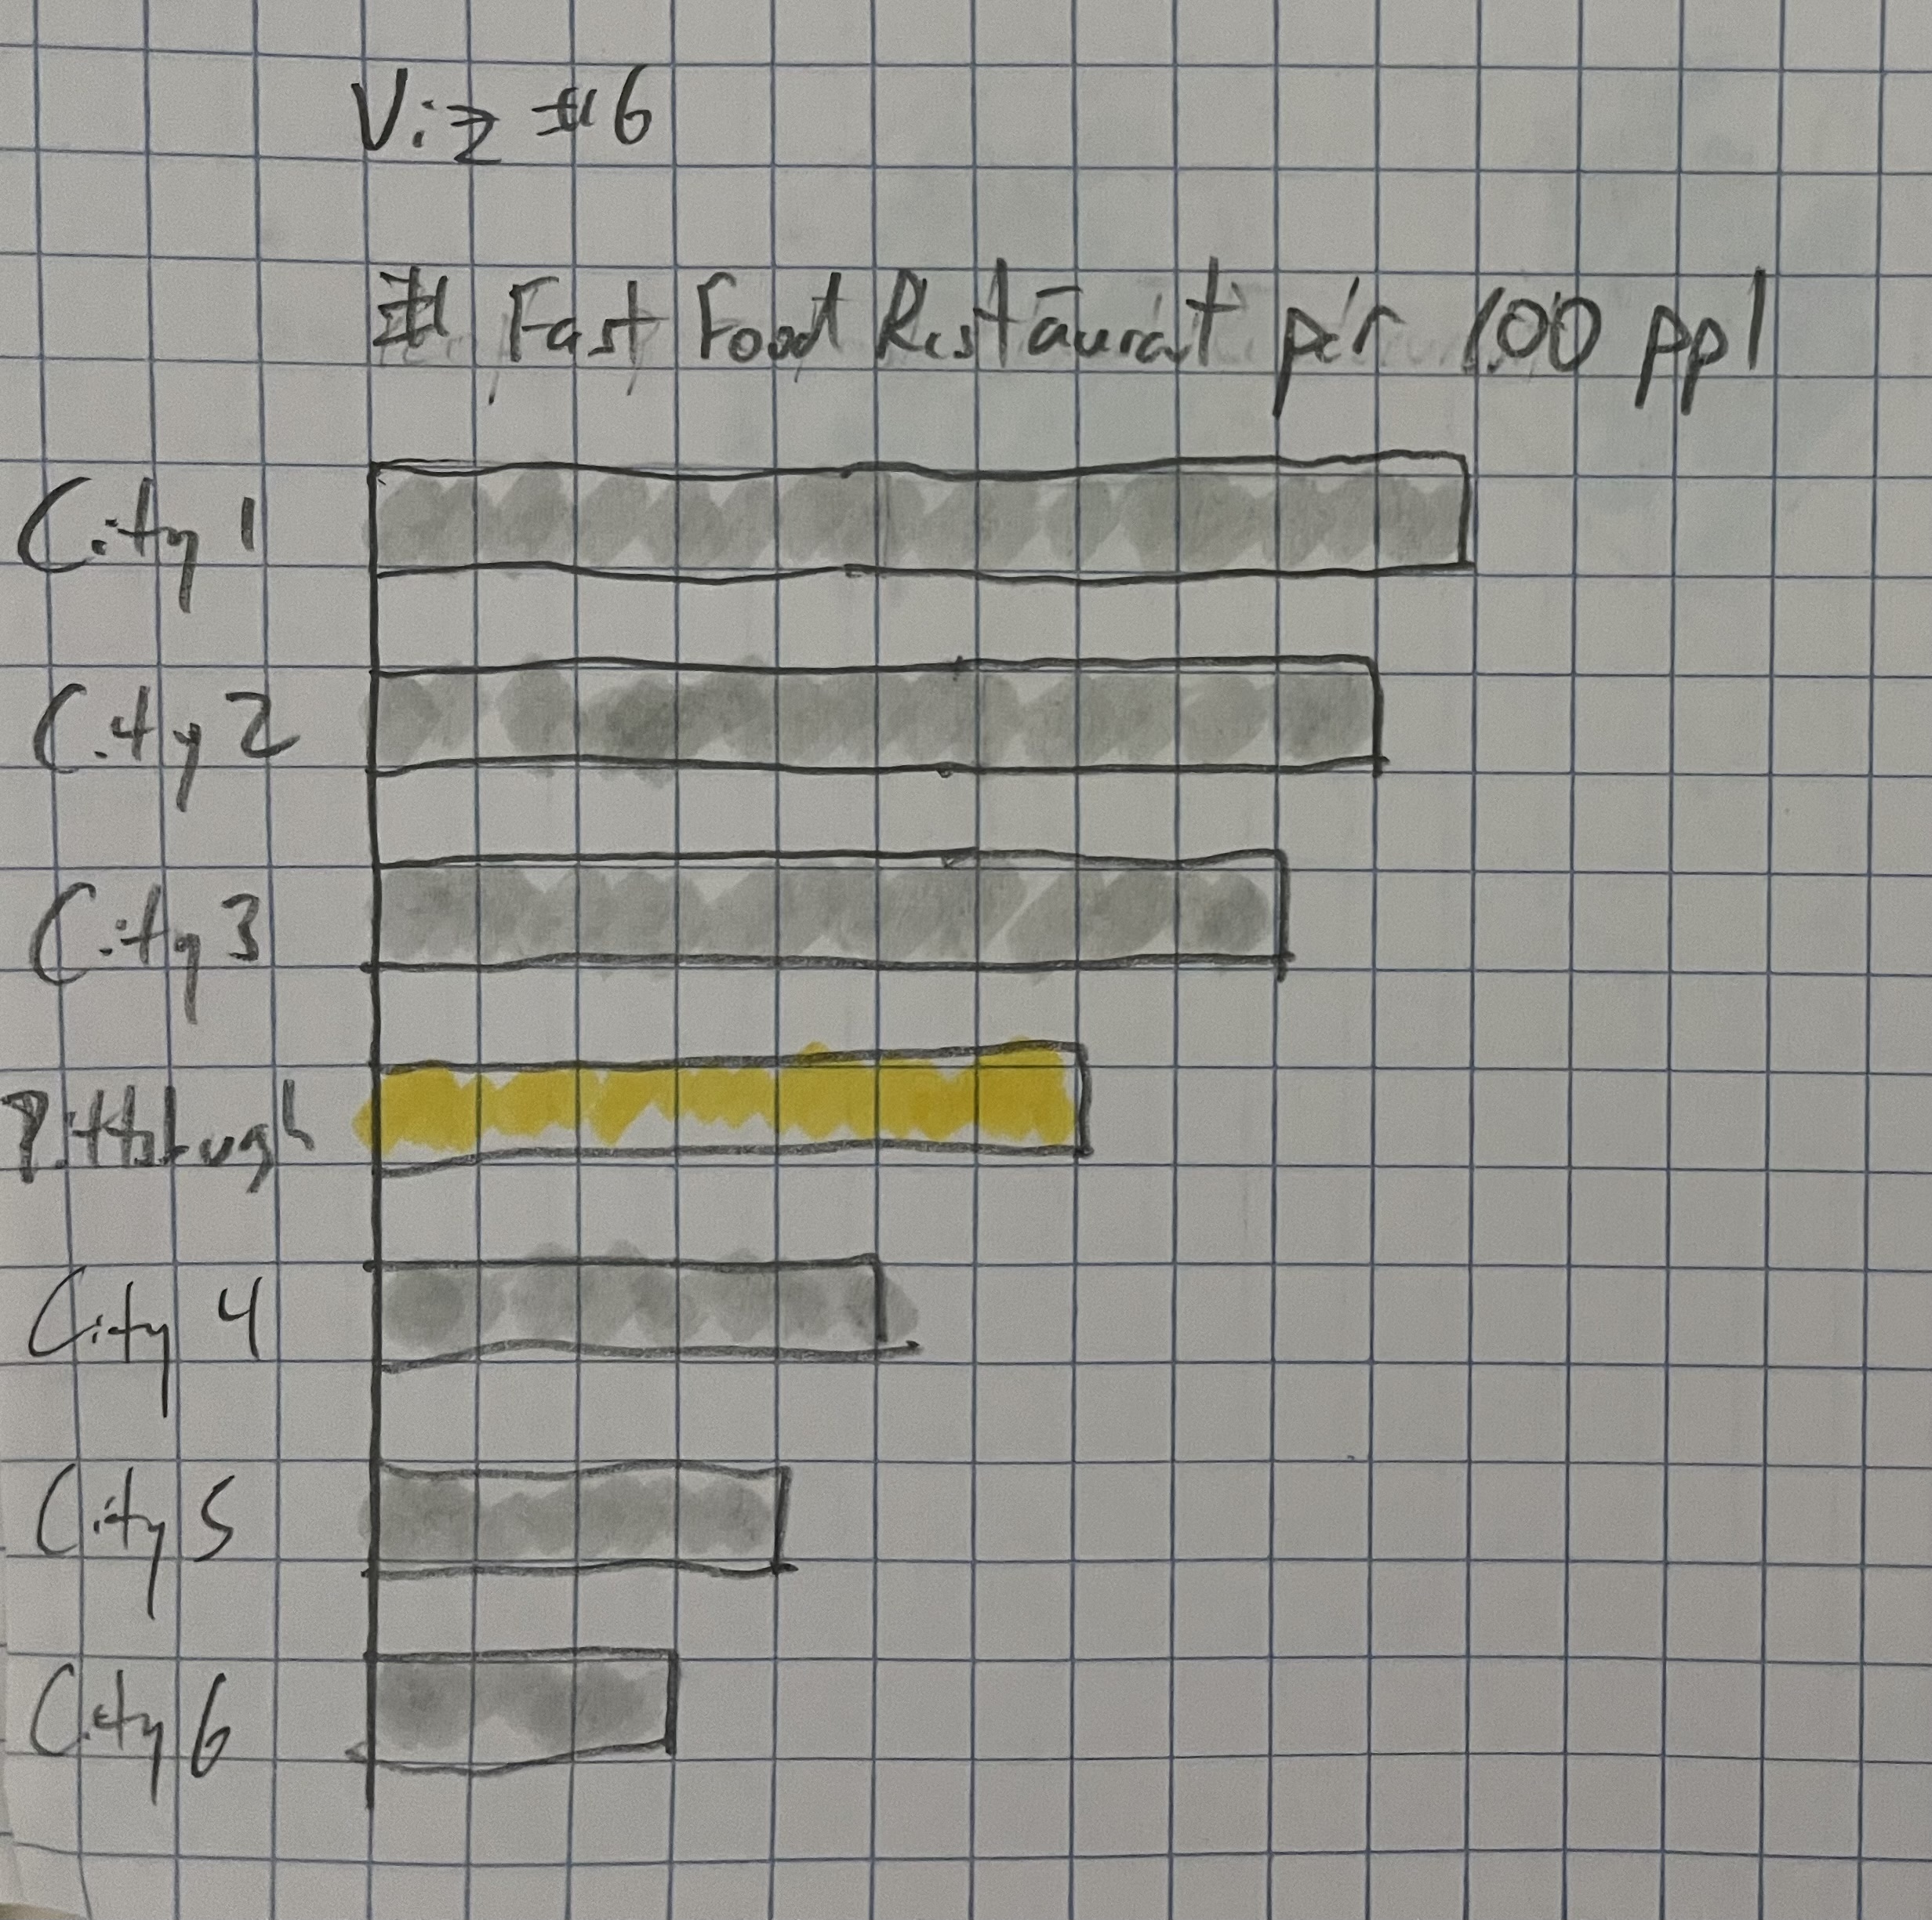 Viz #6
# Fast Food Restaurat per 100 ppl
City 1
City 2
City 3
Pittsbugh
City 4
City 5
City 6